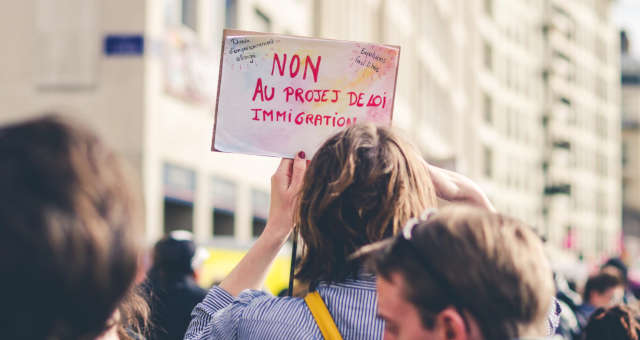 NON
AU PROJET DE LOI
IMMIGRATION